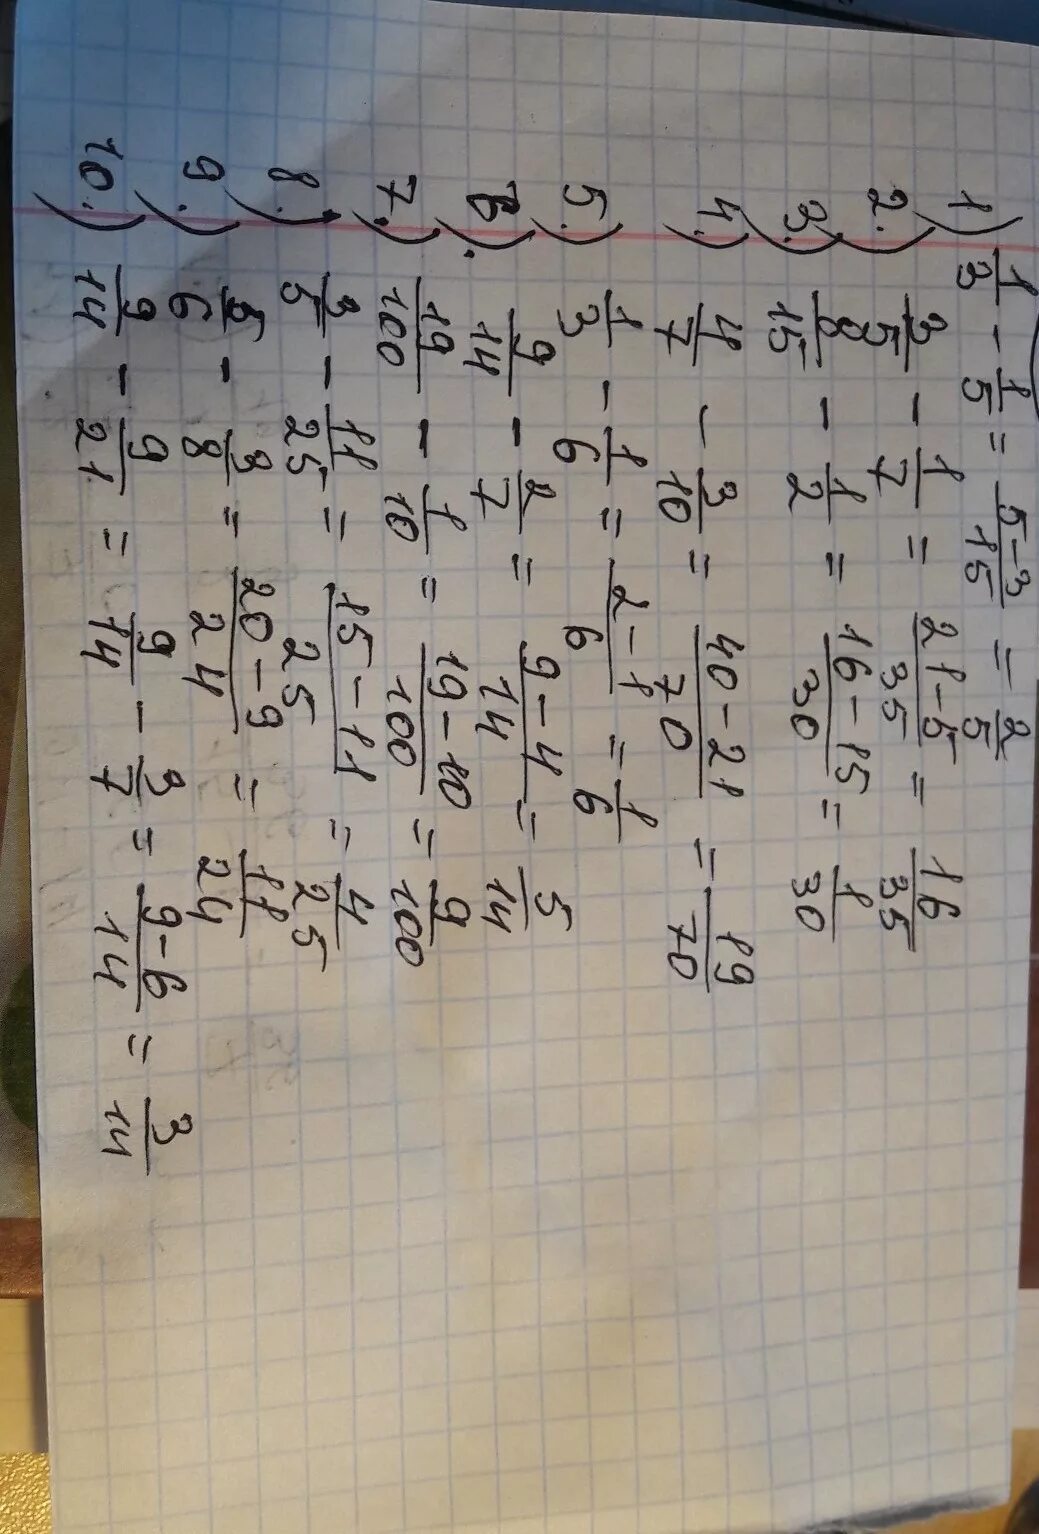 1) 1/3 - 1/5 = 5-3/15 = 2/5
2.) 3/5 - 1/7 = 21-5/35 = 16/35
3.) 8/15 - 1/2 = 16-15/30 = 1/30
4.) 4/7 - 3/10 = 40-21/70 = 19/70
5.) 1/3 - 1/6 = 2-1/6 = 1/6
6). 9/14 - 2/7 = 9-4/14 = 5/14
7.) 19/100 - 1/10 = 19-10/100 = 9/100
8.) 3/5 - 11/25 = 15-11/25 = 4/25
9.) 5/6 - 3/8 = 20-9/24 = 11/24
10.) 9/14 - 9/21 = 9/14 - 3/7 = 9-6/14 = 3/14